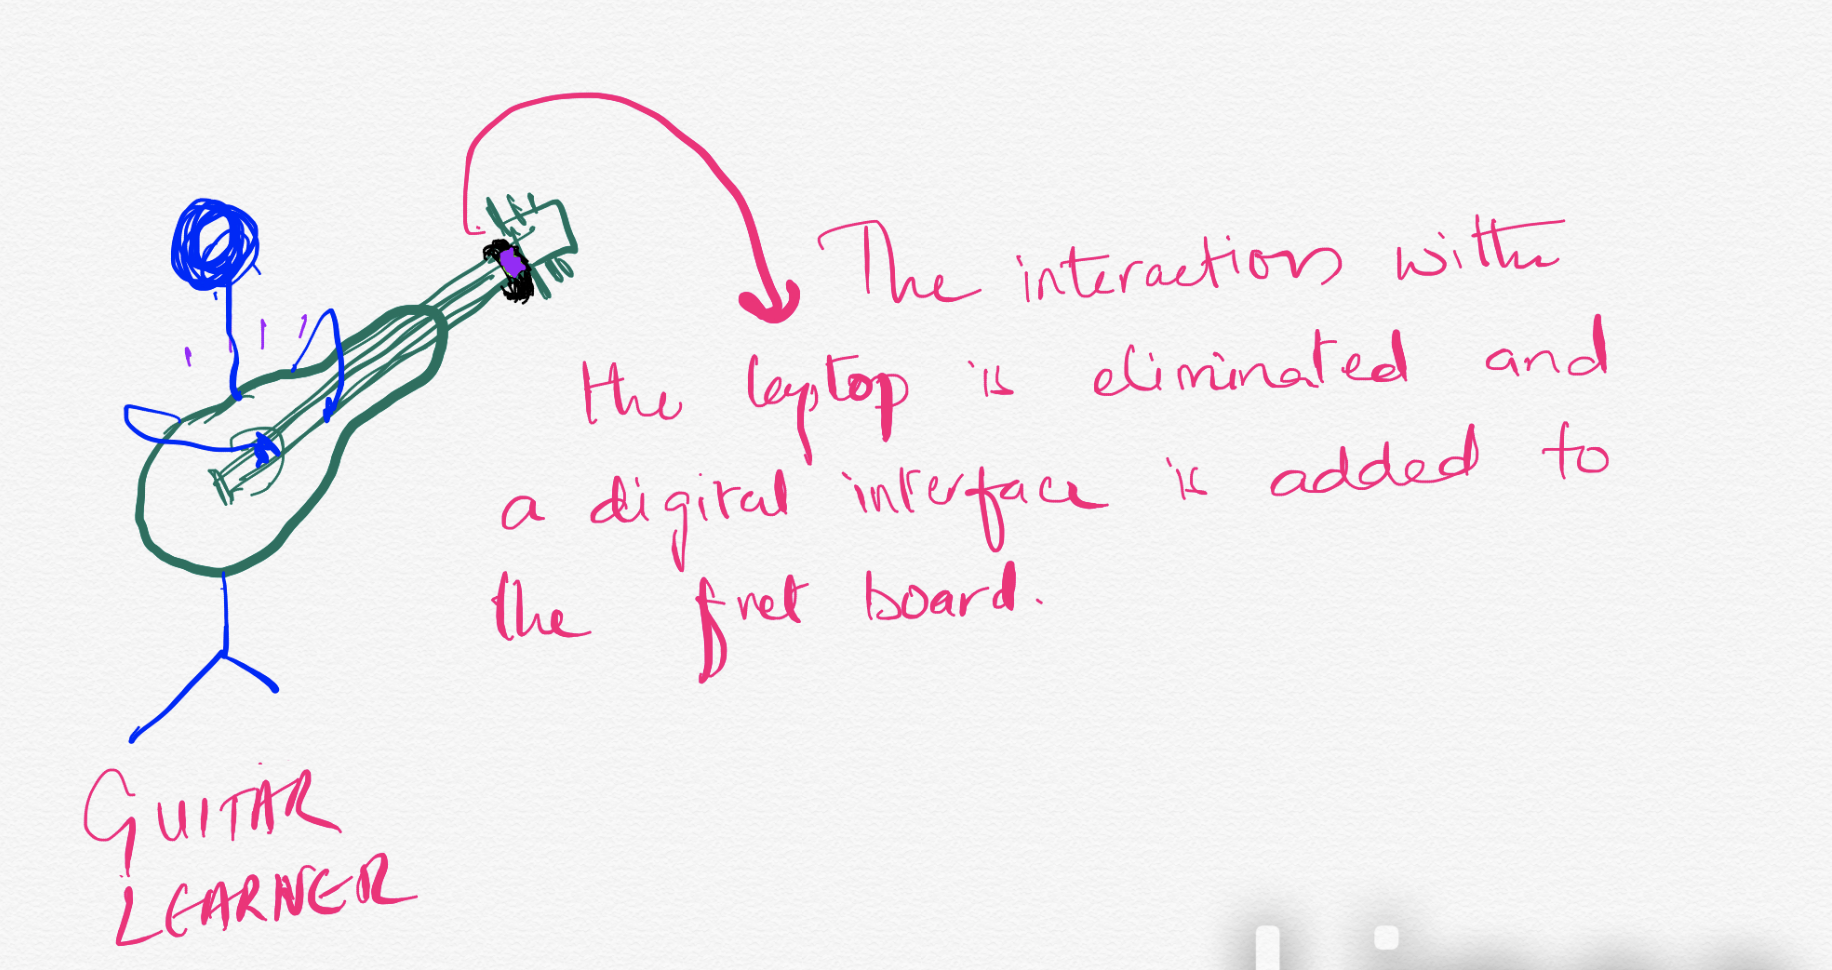 The interaction with
the laptop is eliminated and
a digital interface is added to
the fret board.
GUITAR
LEARNER